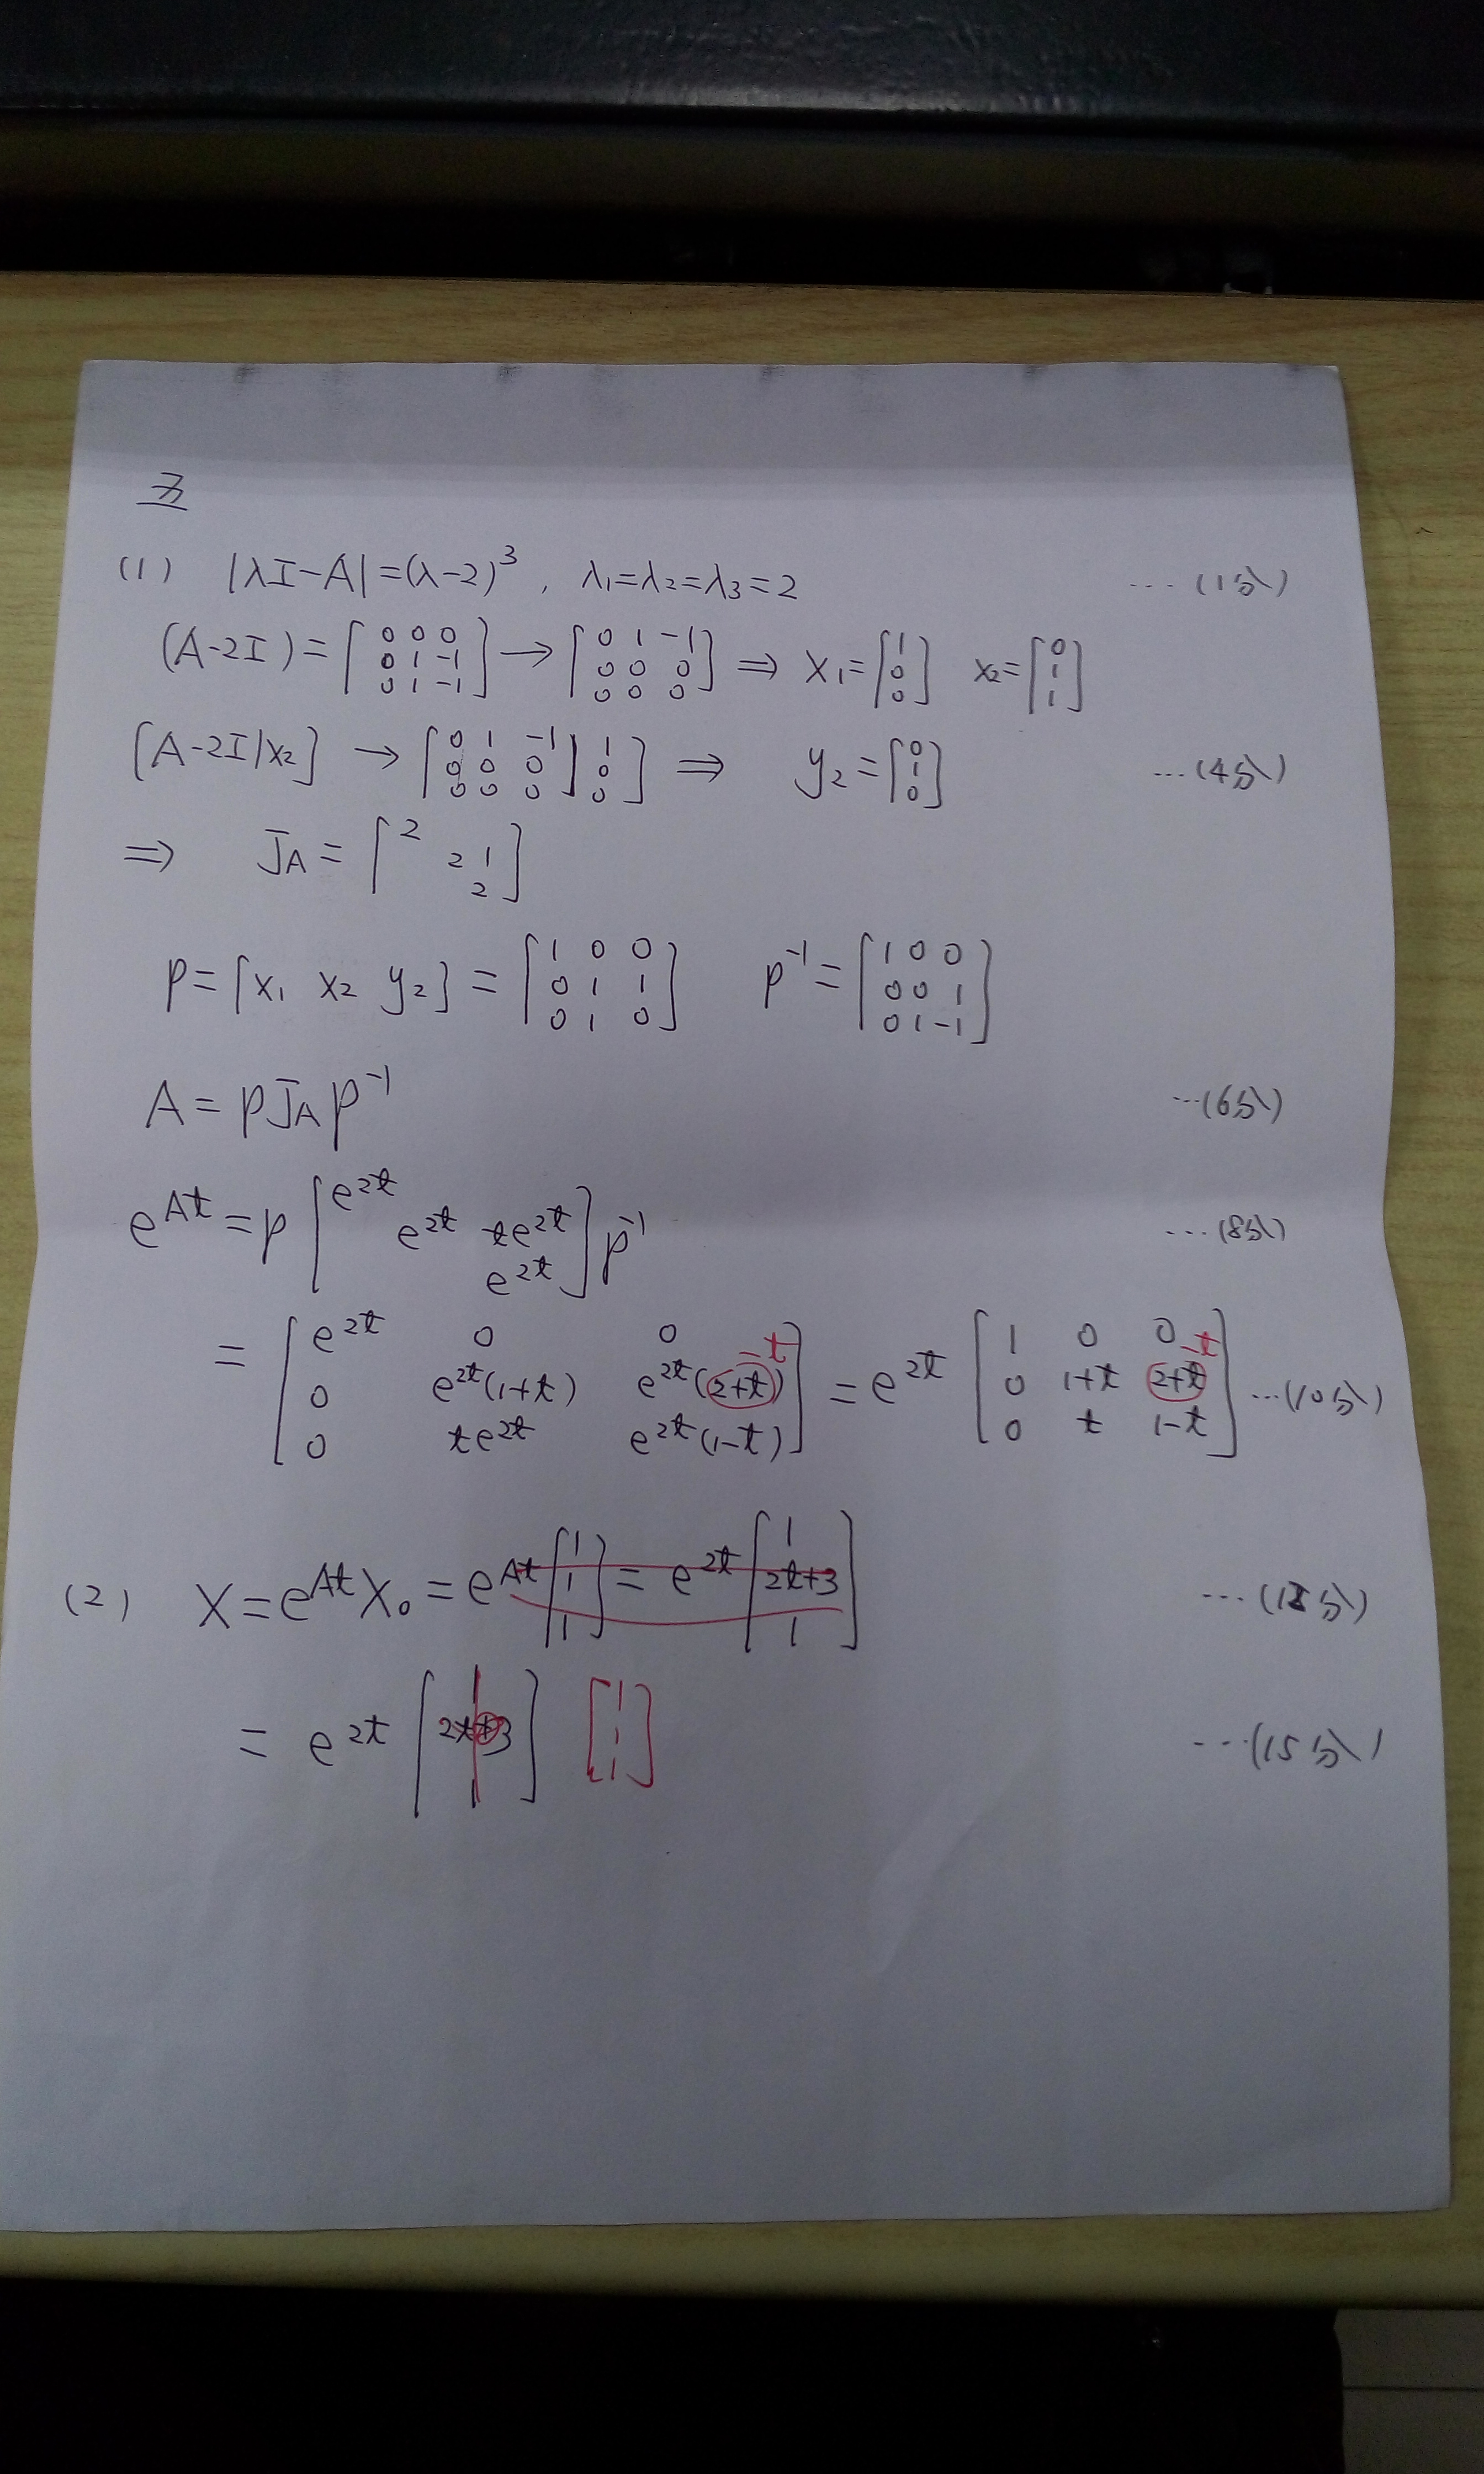 五
(1) |λI-A|=(λ-2)³, λ₁=λ₂=λ₃=2 …(1分)
(A-2I)=[0 0 0; 0 1 -1; 0 1 -1]→[0 1 -1; 0 0 0; 0 0 0]⇒ X₁=[1; 0; 0] X₂=[0; 1; 1]
[A-2I|X₂] → [0 1 -1 | 1; 0 0 0 | 0; 0 0 0 | 0] ⇒ y₂=[0; 1; 0] …(4分)
⇒ J_A=[2; 2 1; 2]
P=[X₁ X₂ y₂]=[1 0 0; 0 1 1; 0 1 0] P⁻¹=[1 0 0; 0 0 1; 0 1 -1]
A=PJ_AP⁻¹ …(6分)
e^{At}=P[e^{2t}; e^{2t} te^{2t}; e^{2t}]P⁻¹ …(8分)
=[e^{2t} 0 0; 0 e^{2t}(1+t) e^{2t}(2+t) -t; 0 te^{2t} e^{2t}(1-t)]=e^{2t}[1 0 0; 0 1+t 2+t -t; 0 t 1-t] …(10分)
(2) X=e^{At}X₀=e^{At}[1; 1; 1]=e^{2t}[1; 2t+3; 1] …(分)
=e^{2t}[1; 2t+3; 1] [1; 1; 1] …(15分)